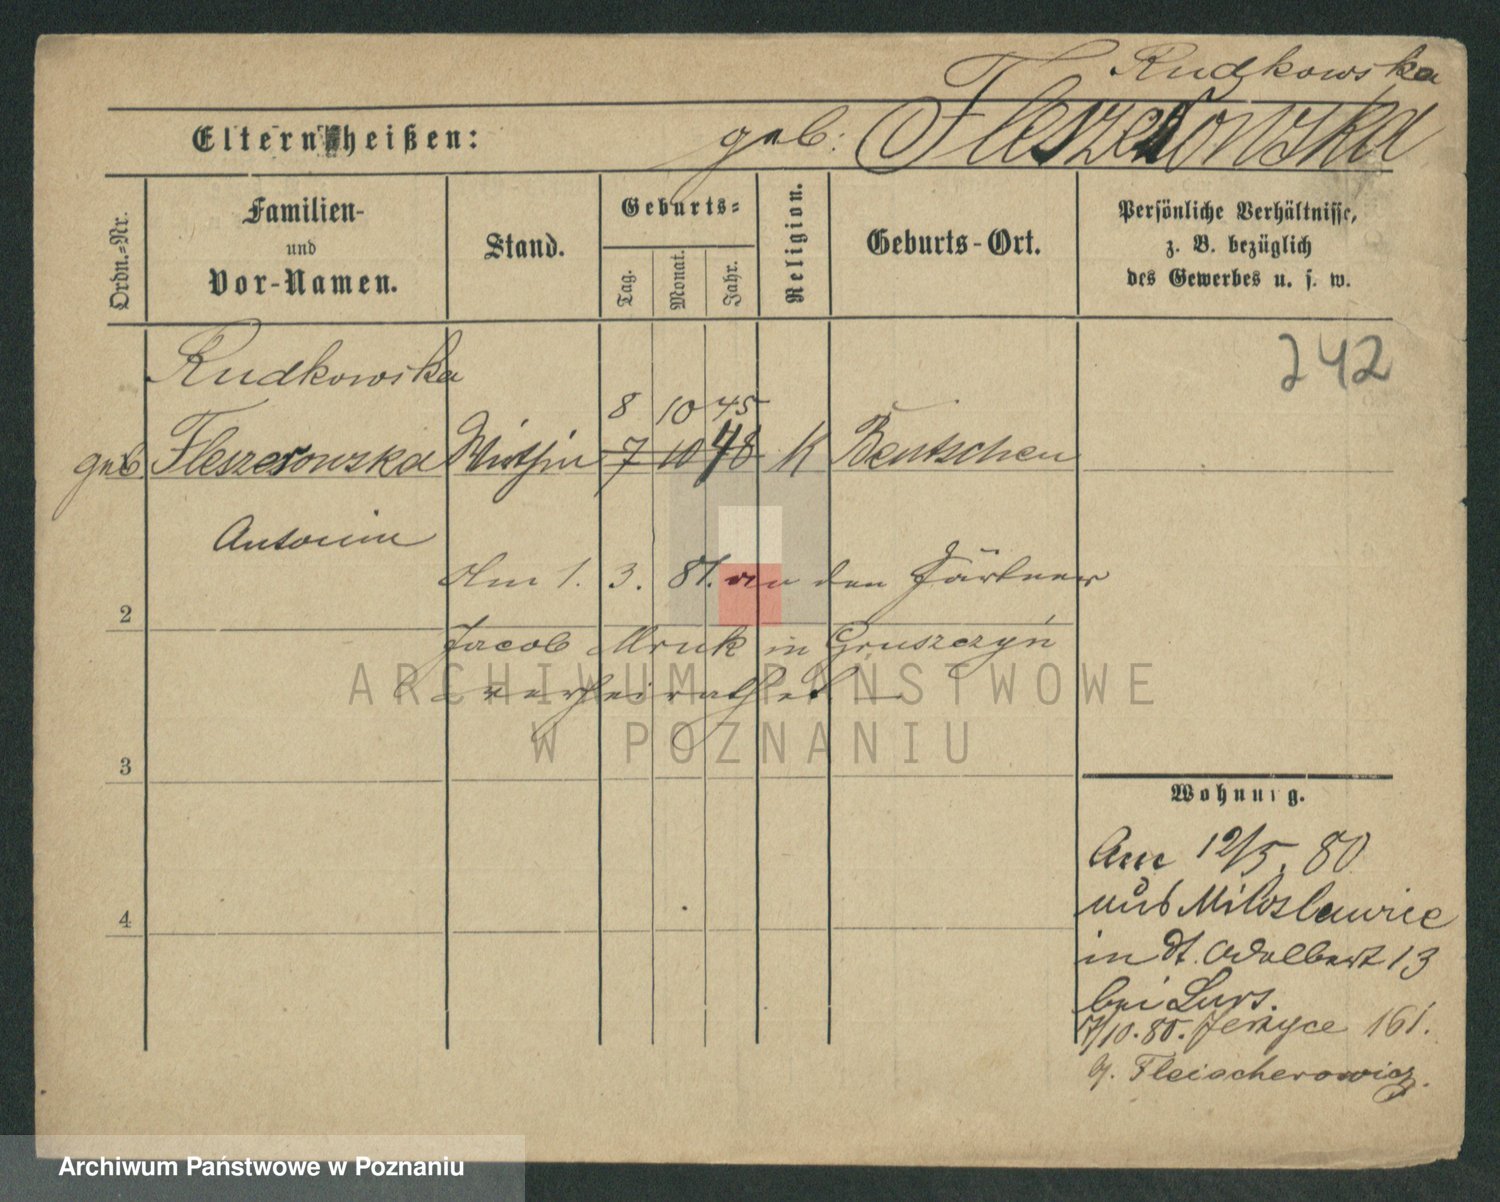 Rudkowska
geb: Fleszerowska
Eltern heißen:
Ordn.=Nr.
Familien-
und
Vor-Namen.
Stand.
Geburts=
Tag.
Monat.
Jahr.
Religion.
Geburts-Ort.
Persönliche Verhältnisse,
z. B. bezüglich
des Gewerbes u. s. w.
Rudkowska
242
8 10 45
geb Fleszerowska Wirthin 7 10 48 K Bentschen
Antonin
Am 1. 3. 81. an den Gärtner
2
Jacob Mruk in Gruszczyń
verheirathet. —
3
4
Wohnung.
Am 12/5. 80
aus Miloslawice
in St. Adalbert 13
bei Lurs.
7/10. 80. Jerzyce 161.
b. Fleischerowicz.
ARCHIWUM PAŃSTWOWE
W POZNANIU
Archiwum Państwowe w Poznaniu